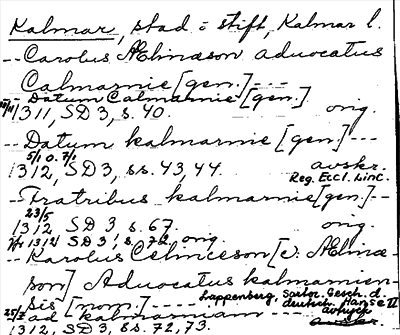 Kalmar, stad o stift, Kalmar l.
-- Carolus Ælinæson advocatus
Calmarnie [gen.] ---
-- Datum Calmarnie [gen.]
1311, SD 3, s. 40. orig.
-- Datum kalmarnie [gen.] ---
5/1 o. 7/1
1312, SD 3, s s. 43, 44. avskr.
Reg. Eccl. Linc.
-- Fratribus kalmarnie [gen.] --
23/5
1312 SD 3 s. 67. orig.
1312 SD 3, s. 72 orig.
-- Karolus Celinceson [o: Ælinæ
son] Advocatus kalmarnen-
sis [nom.] --- Lappenberg, Sartor. Gesch. d.
deutsch. Hanse II
-- ad kalmarniam -- avtryck
1312, SD 3, s s. 72, 73.